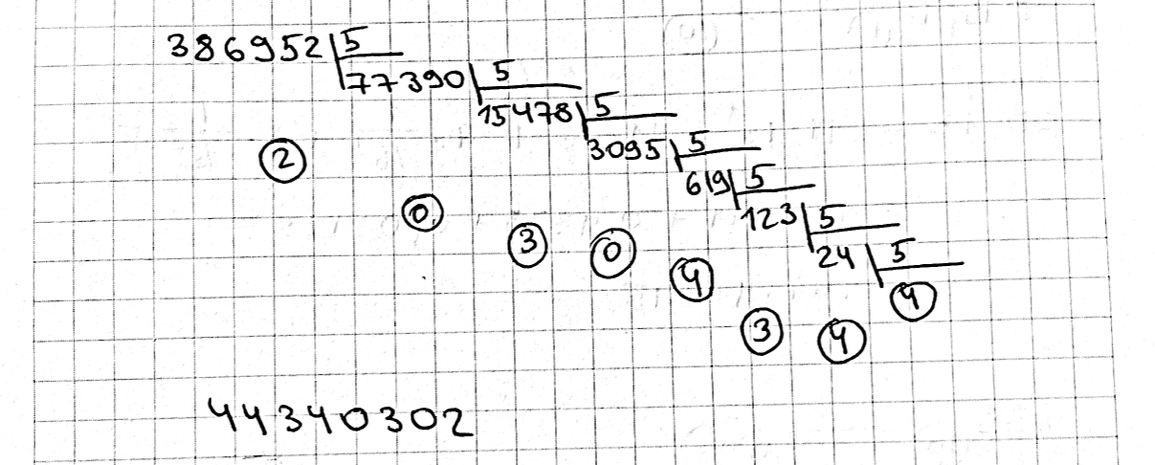 386952 5
77390 5
15478 5
3095 5
619 5
123 5
24 5
2
0
3
0
4
3
4
4
44340302